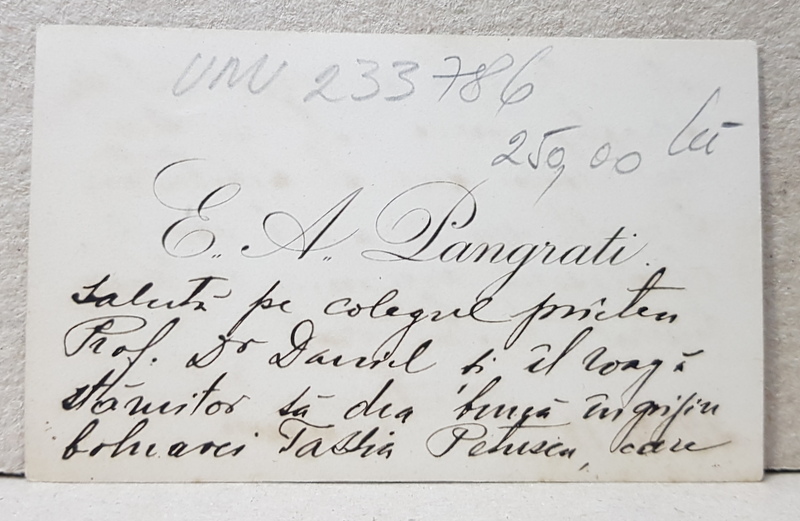 UNV 233786
250,00 lei
E. A. Pangrati.
salută pe colegul prieten
Prof. Dr Daniel și îl roagă
stăruitor să dea bună îngrijire
bolnavei Tassia Petrescu, care